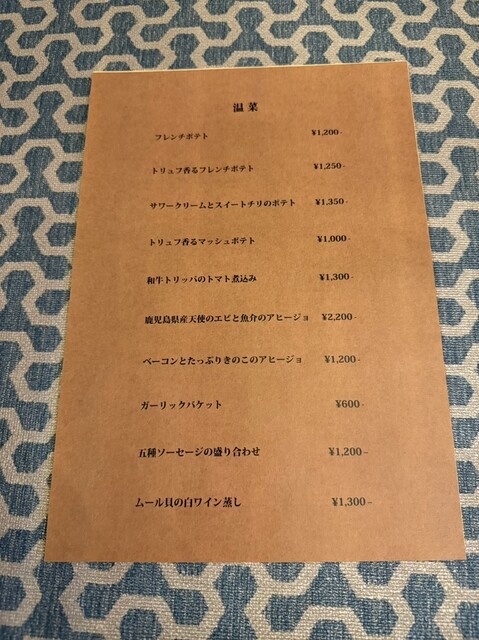 温菜
フレンチポテト ¥1,200-
トリュフ香るフレンチポテト ¥1,250-
サワークリームとスイートチリのポテト ¥1,350-
トリュフ香るマッシュポテト ¥1,000-
和牛トリッパのトマト煮込み ¥1,300-
鹿児島県産天使のエビと魚介のアヒージョ ¥2,200-
ベーコンとたっぷりきのこのアヒージョ ¥1,200-
ガーリックバケット ¥600-
五種ソーセージの盛り合わせ ¥1,200-
ムール貝の白ワイン蒸し ¥1,300-